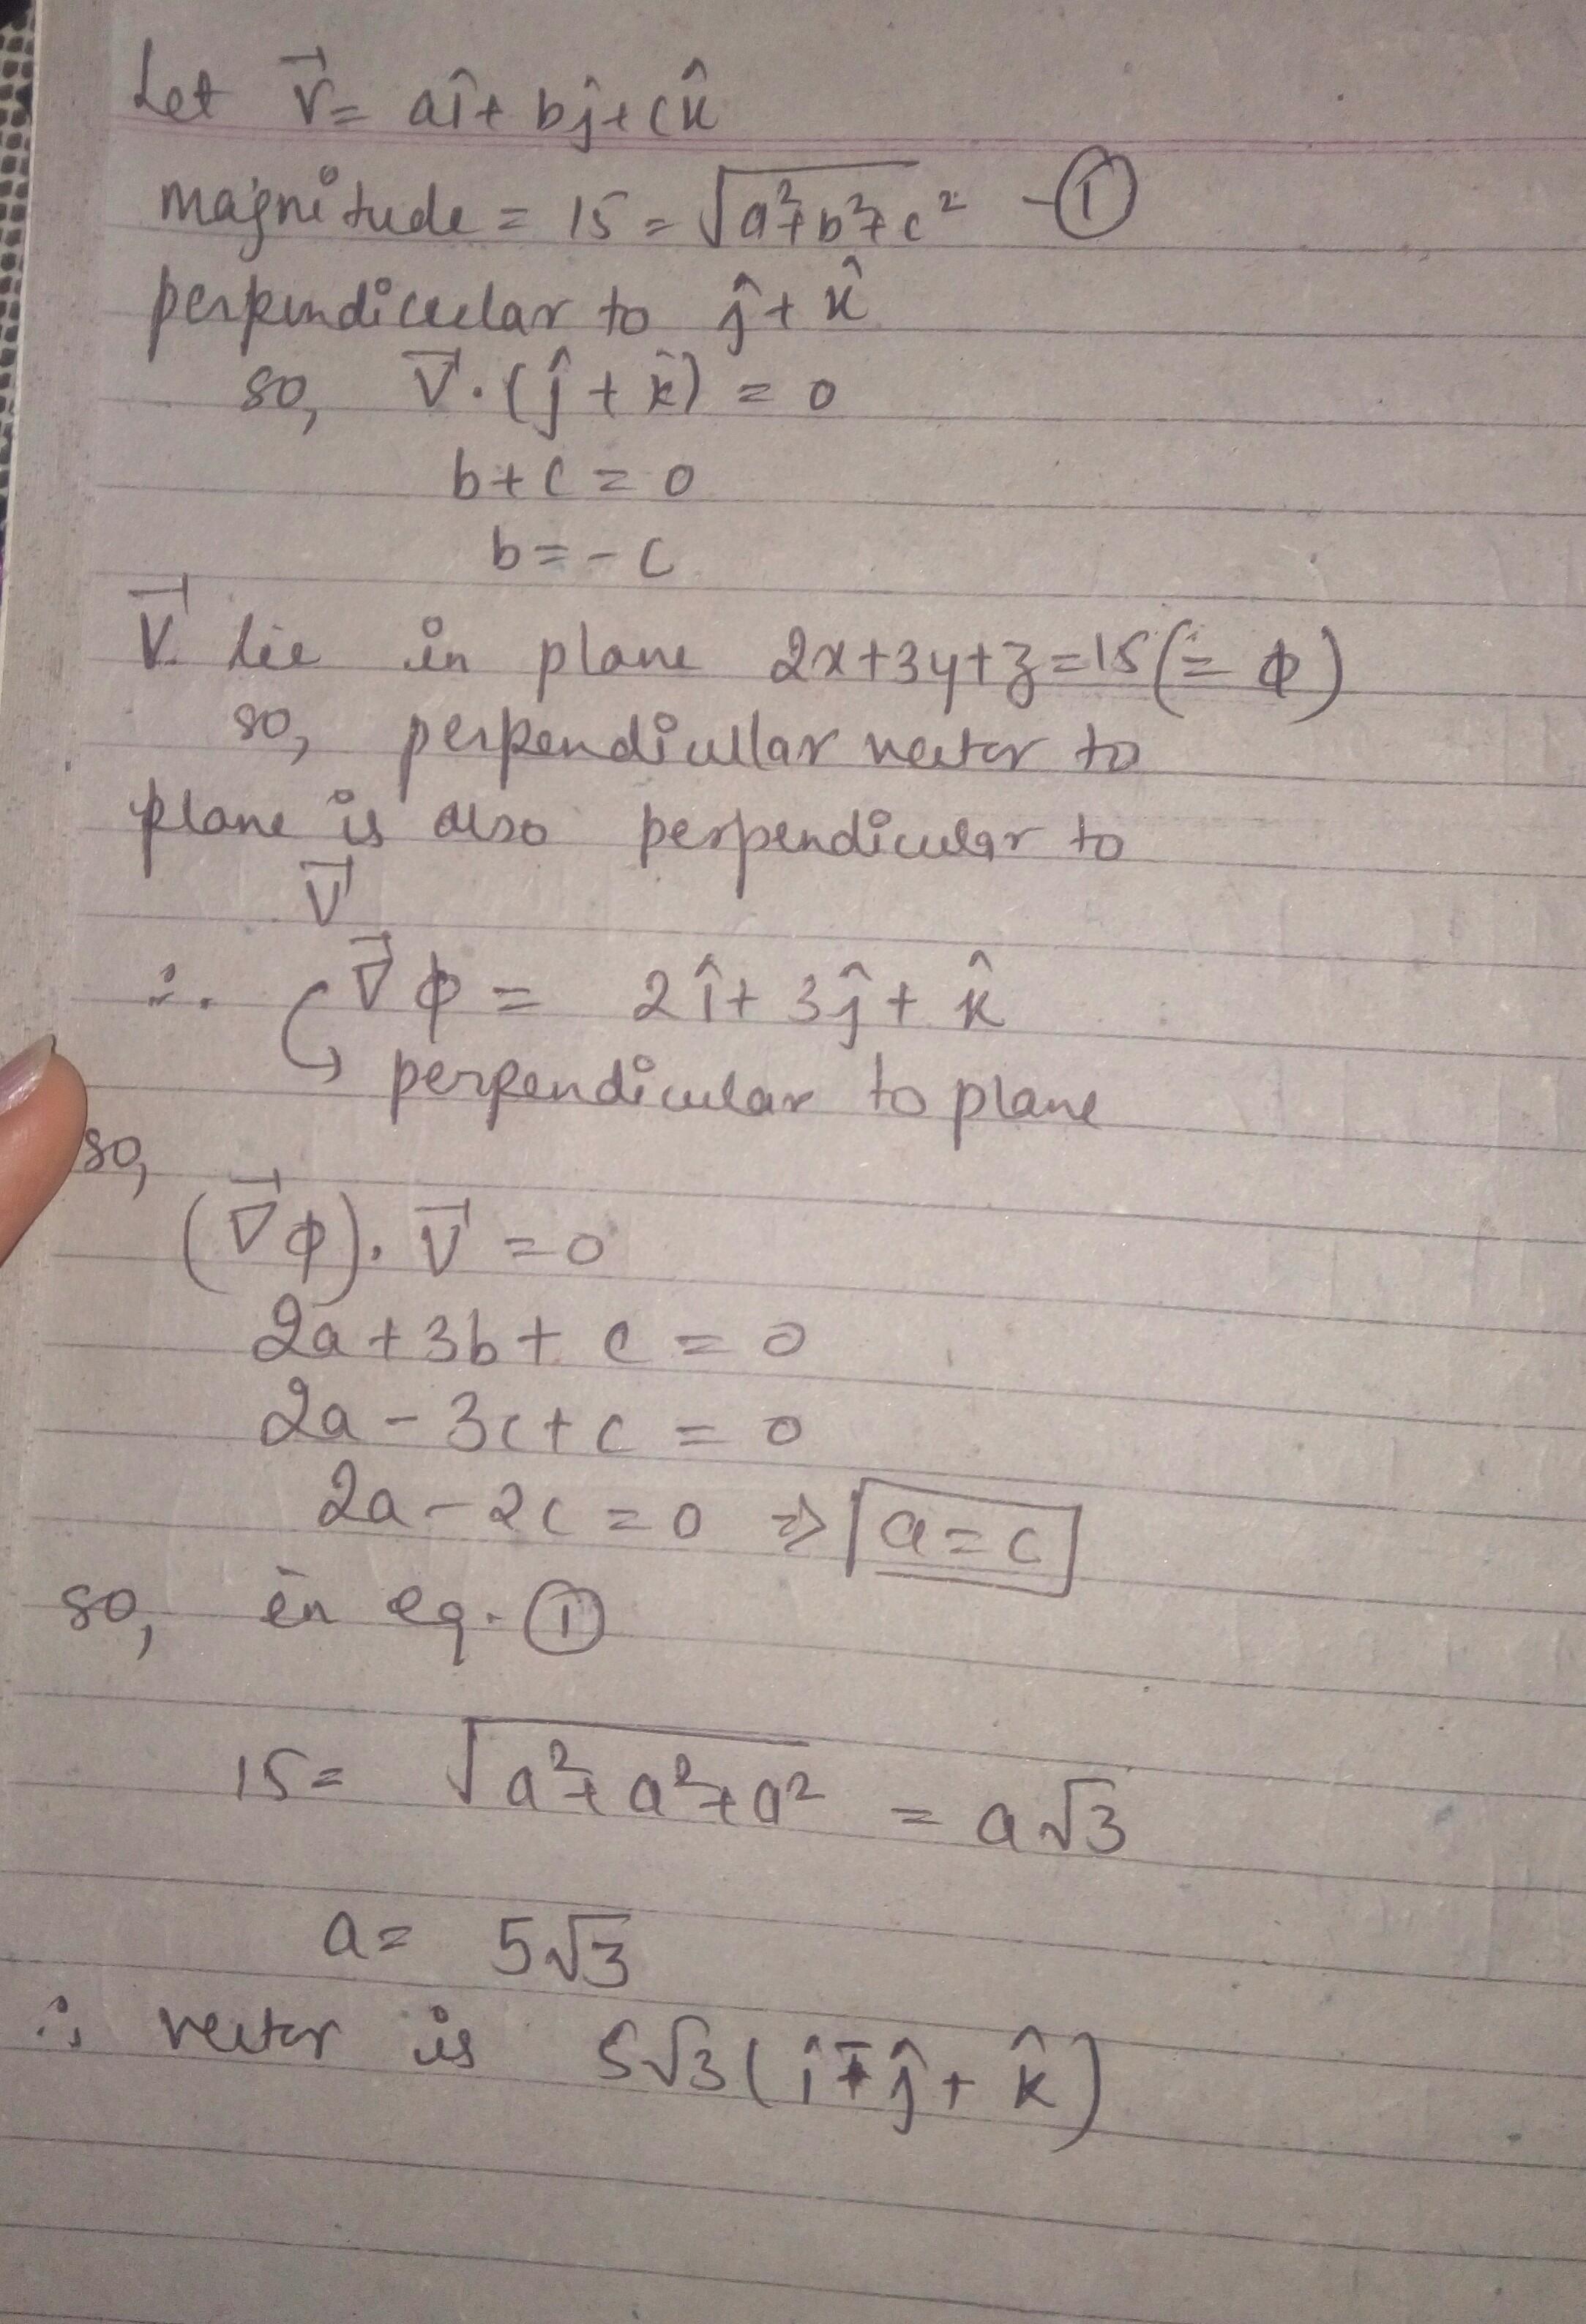 Let V⃗ = aî + bĵ + ck̂
magnitude = 15 = √a²+b²+c² -①
perpendicular to ĵ + k̂
so, V⃗.(ĵ + k̂) = 0
b + c = 0
b = - c
V⃗ lie in plane 2x+3y+z=15(= ϕ)
so, perpendicullar vector to
plane is also perpendicular to
V⃗
∴ ∇⃗ϕ = 2î + 3ĵ + k̂
↳ perpendicular to plane
so,
(∇⃗ϕ). V⃗ = 0
2a + 3b + c = 0
2a - 3c + c = 0
2a - 2c = 0 ⇒ a = c
so, in eq. ①
15 = √a²+a²+a² = a√3
a = 5√3
∴ vector is 5√3(î - ĵ + k̂)